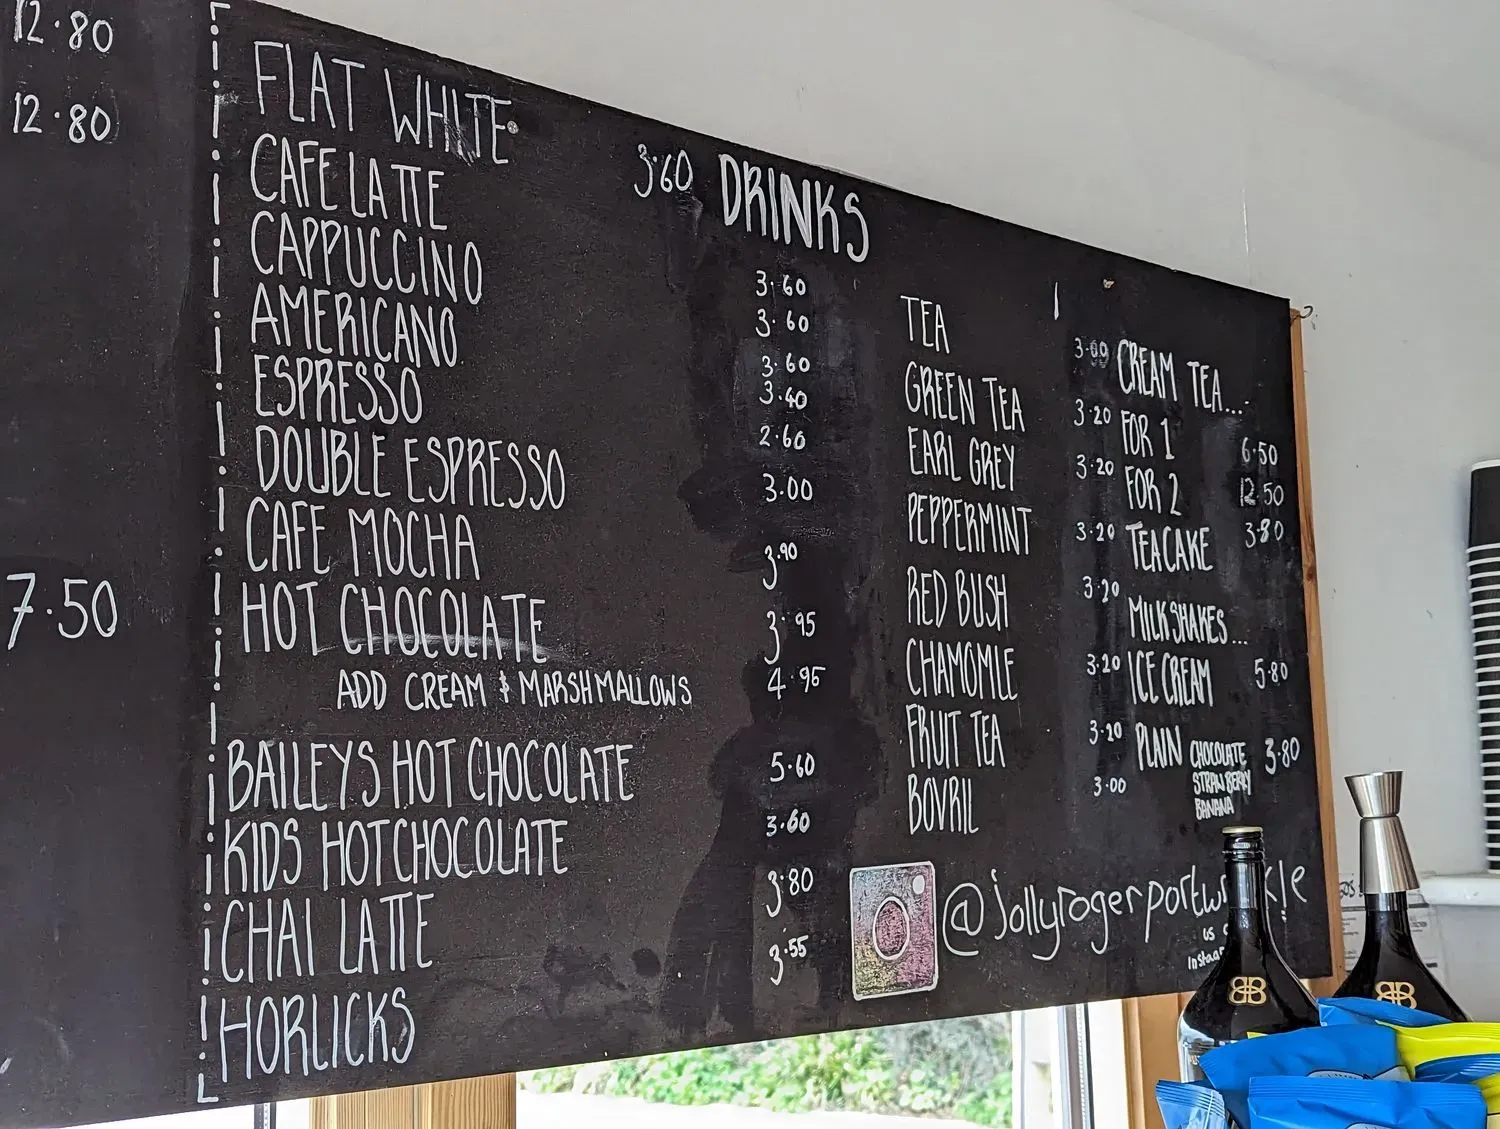 12.80
12.80
7.50
DRINKS
FLAT WHITE 3.60
CAFE LATTE 3.60
CAPPUCCINO 3.60
AMERICANO 3.60
ESPRESSO 3.40
DOUBLE ESPRESSO 2.60
CAFE MOCHA 3.00
HOT CHOCOLATE 3.90
ADD CREAM & MARSHMALLOWS 3.95
4.95
BAILEYS HOT CHOCOLATE 5.60
KIDS HOT CHOCOLATE 3.60
CHAI LATTE 3.80
HORLICKS 3.55
TEA 3.00
GREEN TEA 3.20
EARL GREY 3.20
PEPPERMINT 3.20
RED BUSH 3.20
CHAMOMILE 3.20
FRUIT TEA 3.20
BOVRIL 3.00
CREAM TEA...
FOR 1 6.50
FOR 2 12.50
TEACAKE 3.80
MILKSHAKES...
ICE CREAM 5.80
PLAIN CHOCOLATE 3.80
STRAWBERRY
BANANA
us